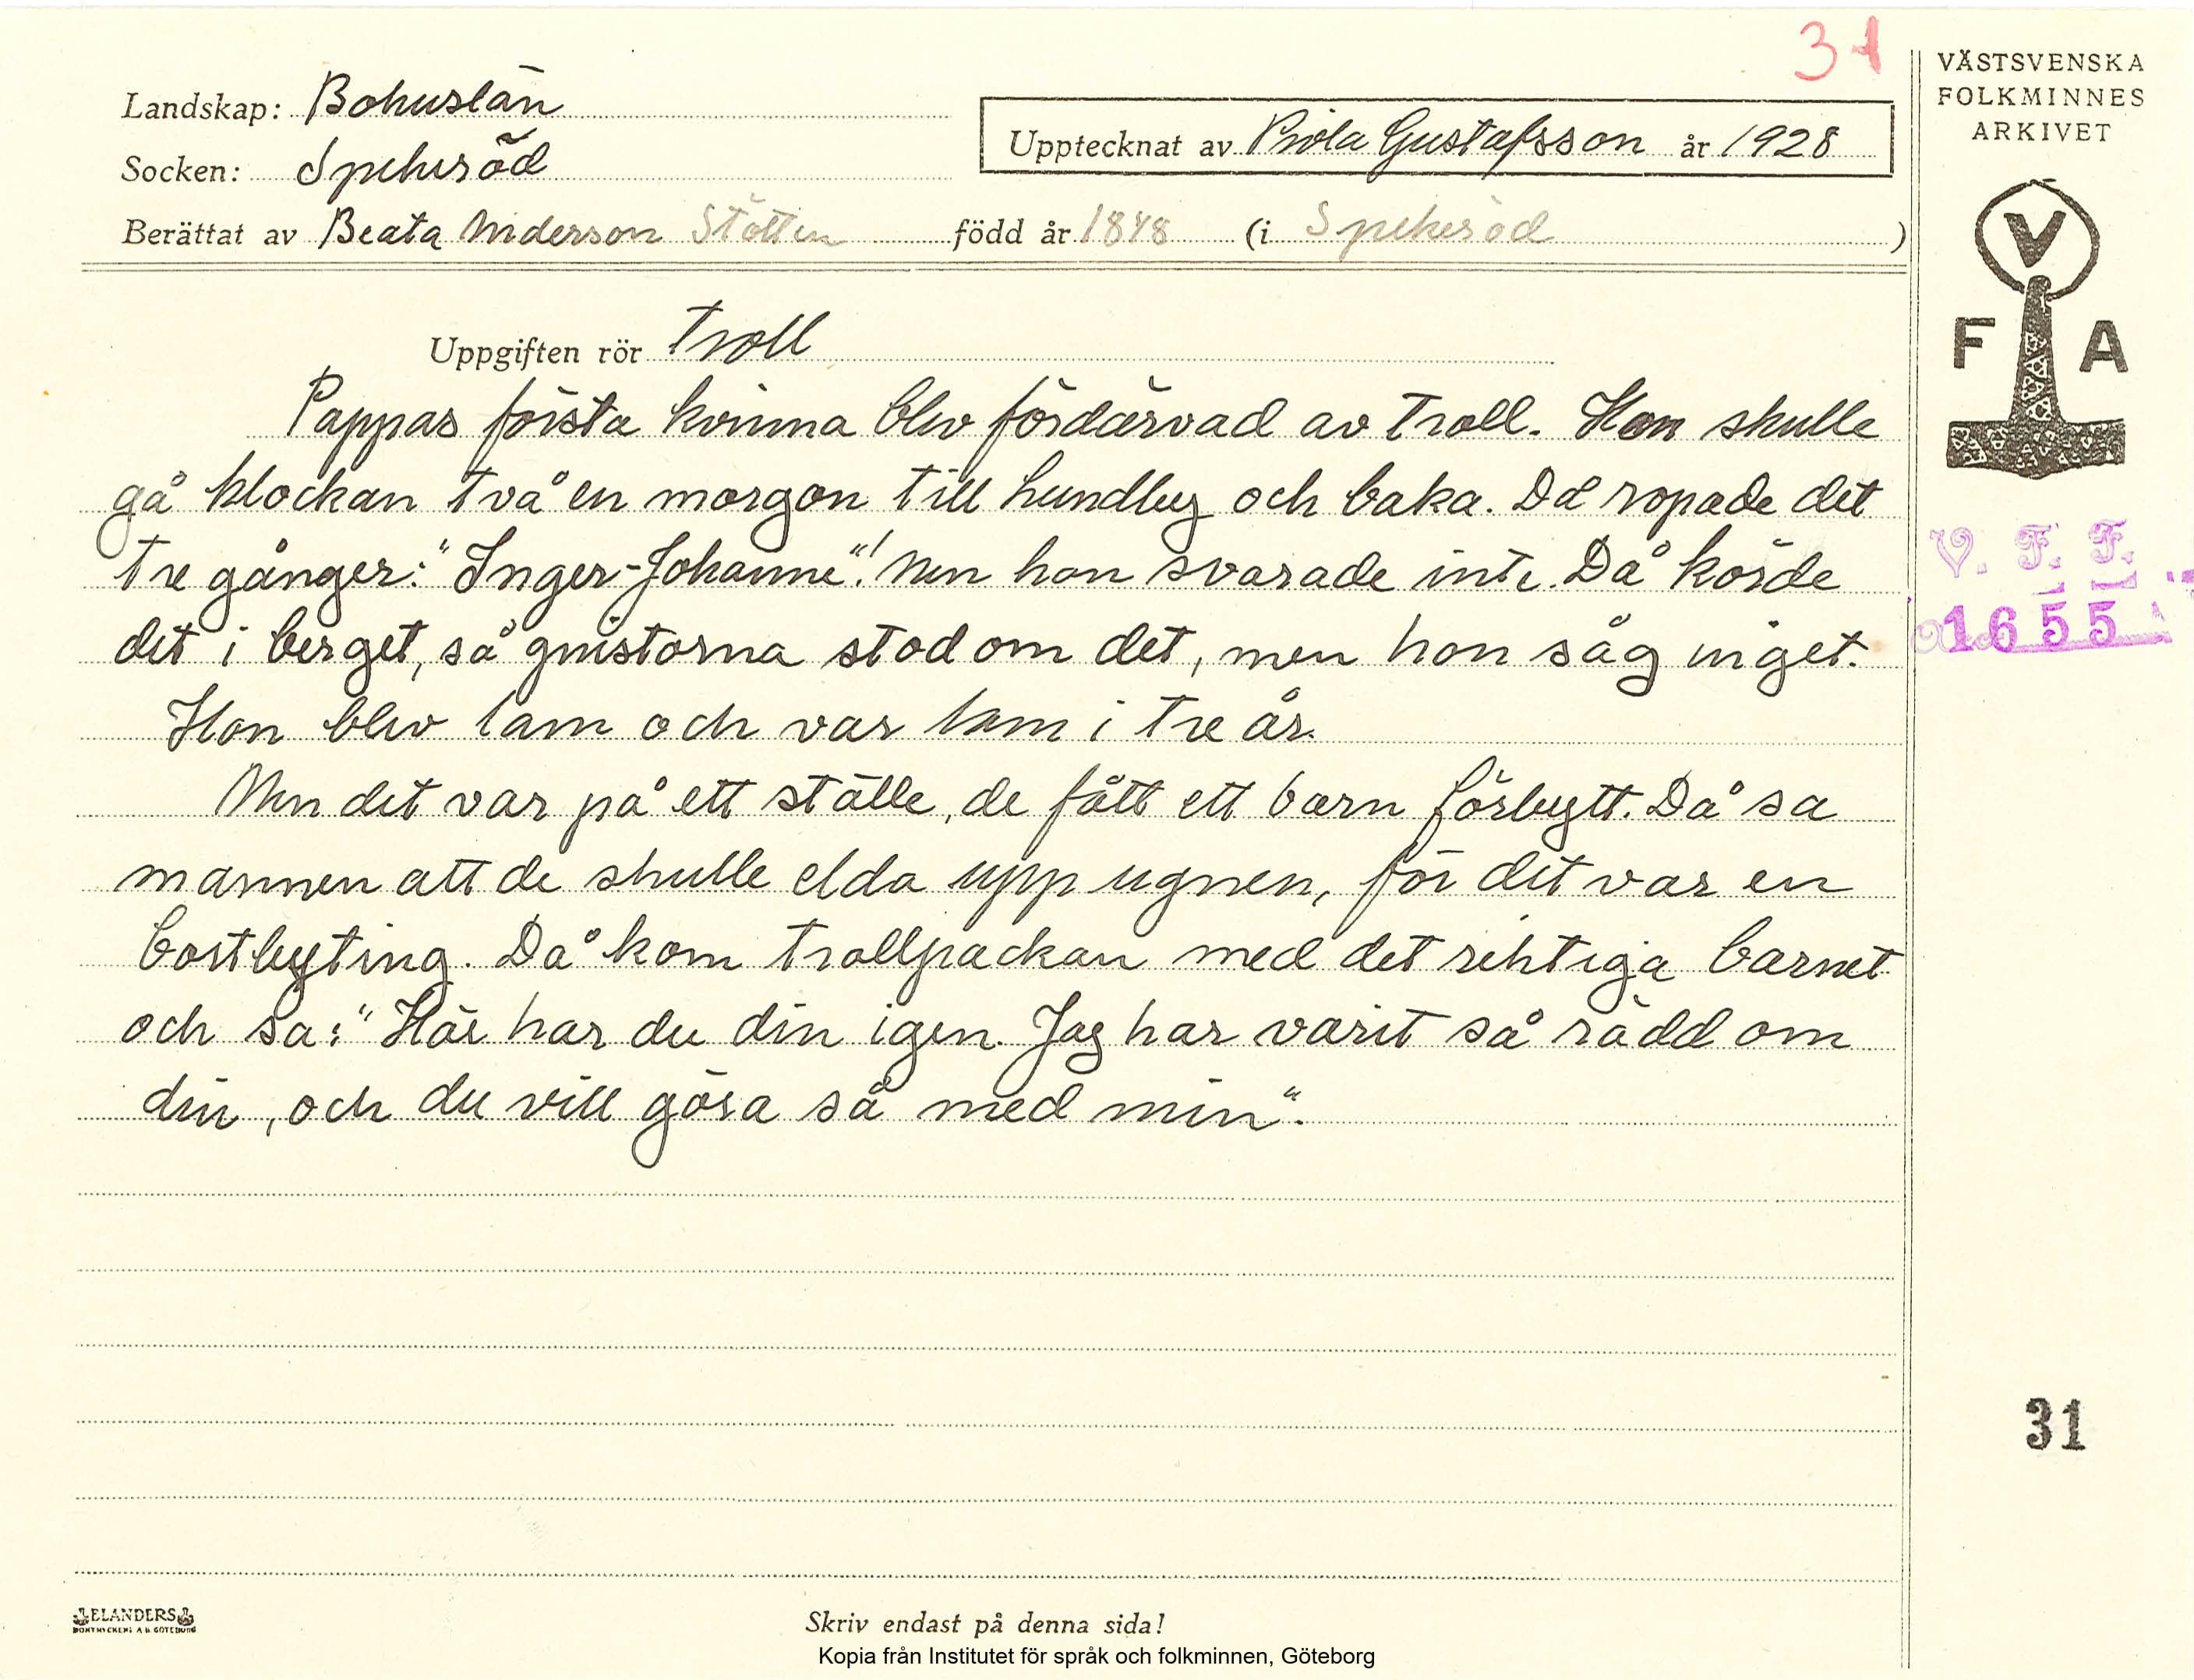 31
VÄSTSVENSKA
FOLKMINNES
ARKIVET
Landskap: Bohuslän
Upptecknat av Viola Gustafsson år 1928
Socken: Spekeröd
Berättat av Beata Anderson Stötten född år 1848 (i Spekeröd )
V
F A
Uppgiften rör Troll
Pappas första kvinna blev fördärvad av troll. Hon skulle
gå klockan två en morgon till Lundby och baka. Då ropade det
tre gånger: "Inger-Johanne"! Men hon svarade inte. Då körde
det i berget, så gnistorna stod om det, men hon såg inget.
Hon blev lam och var lam i tre år.
Men det var på ett ställe, de fått ett barn förbytt. Då sa
mannen att de skulle elda upp ugnen, för det var en
bortbyting. Då kom trollpackan med det rihtiga barnet
och sa: "Här har du din igen. Jag har varit så rädd om
din, och du vill göra så med min".
V. F. F.
1655
31
ELANDERS
BOKTRYCKERI A B. GÖTEBORG
Skriv endast på denna sida!
Kopia från Institutet för språk och folkminnen, Göteborg